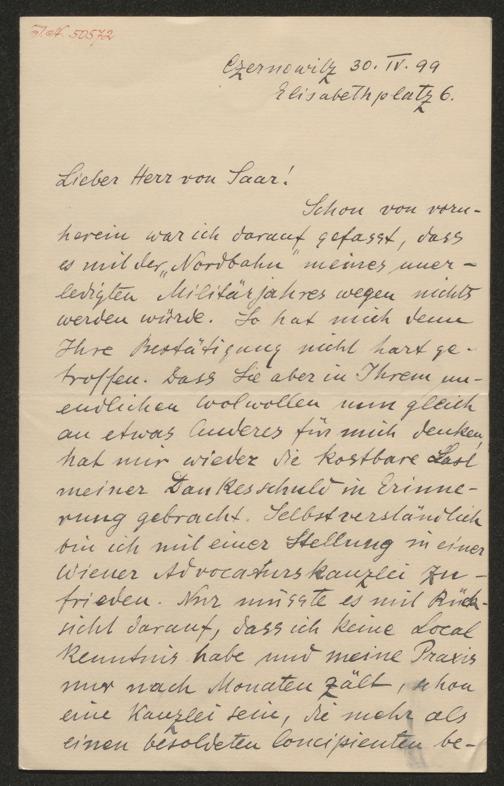 50572
Czernowitz 30. IV. 99
Elisabethplatz 6.
Lieber Herr von Saar!
Schon von vorn-
herein war ich darauf gefasst, dass
es mit der „Nordbahn" meines uner-
ledigten Militärjahres wegen nichts
werden würde. So hat mich denn
Ihre Bestätigung nicht hart ge-
troffen. Dass Sie aber in Ihrem un-
endlichen Wolwollen nun gleich
an etwas Anderes für mich denken,
hat mir wieder die kostbare Last
meiner Dankesschuld in Erinne-
rung gebracht. Selbstverständlich
bin ich mit einer Stellung in einer
Wiener Advocaturskanzlei zu-
frieden. Nur müsste es mit Rück-
sicht darauf, dass ich keine Local
Kenntnis habe und meine Praxis
nur nach Monaten zält, schon
eine Kanzlei sein, die mehr als
einen besoldeten Concipienten be-